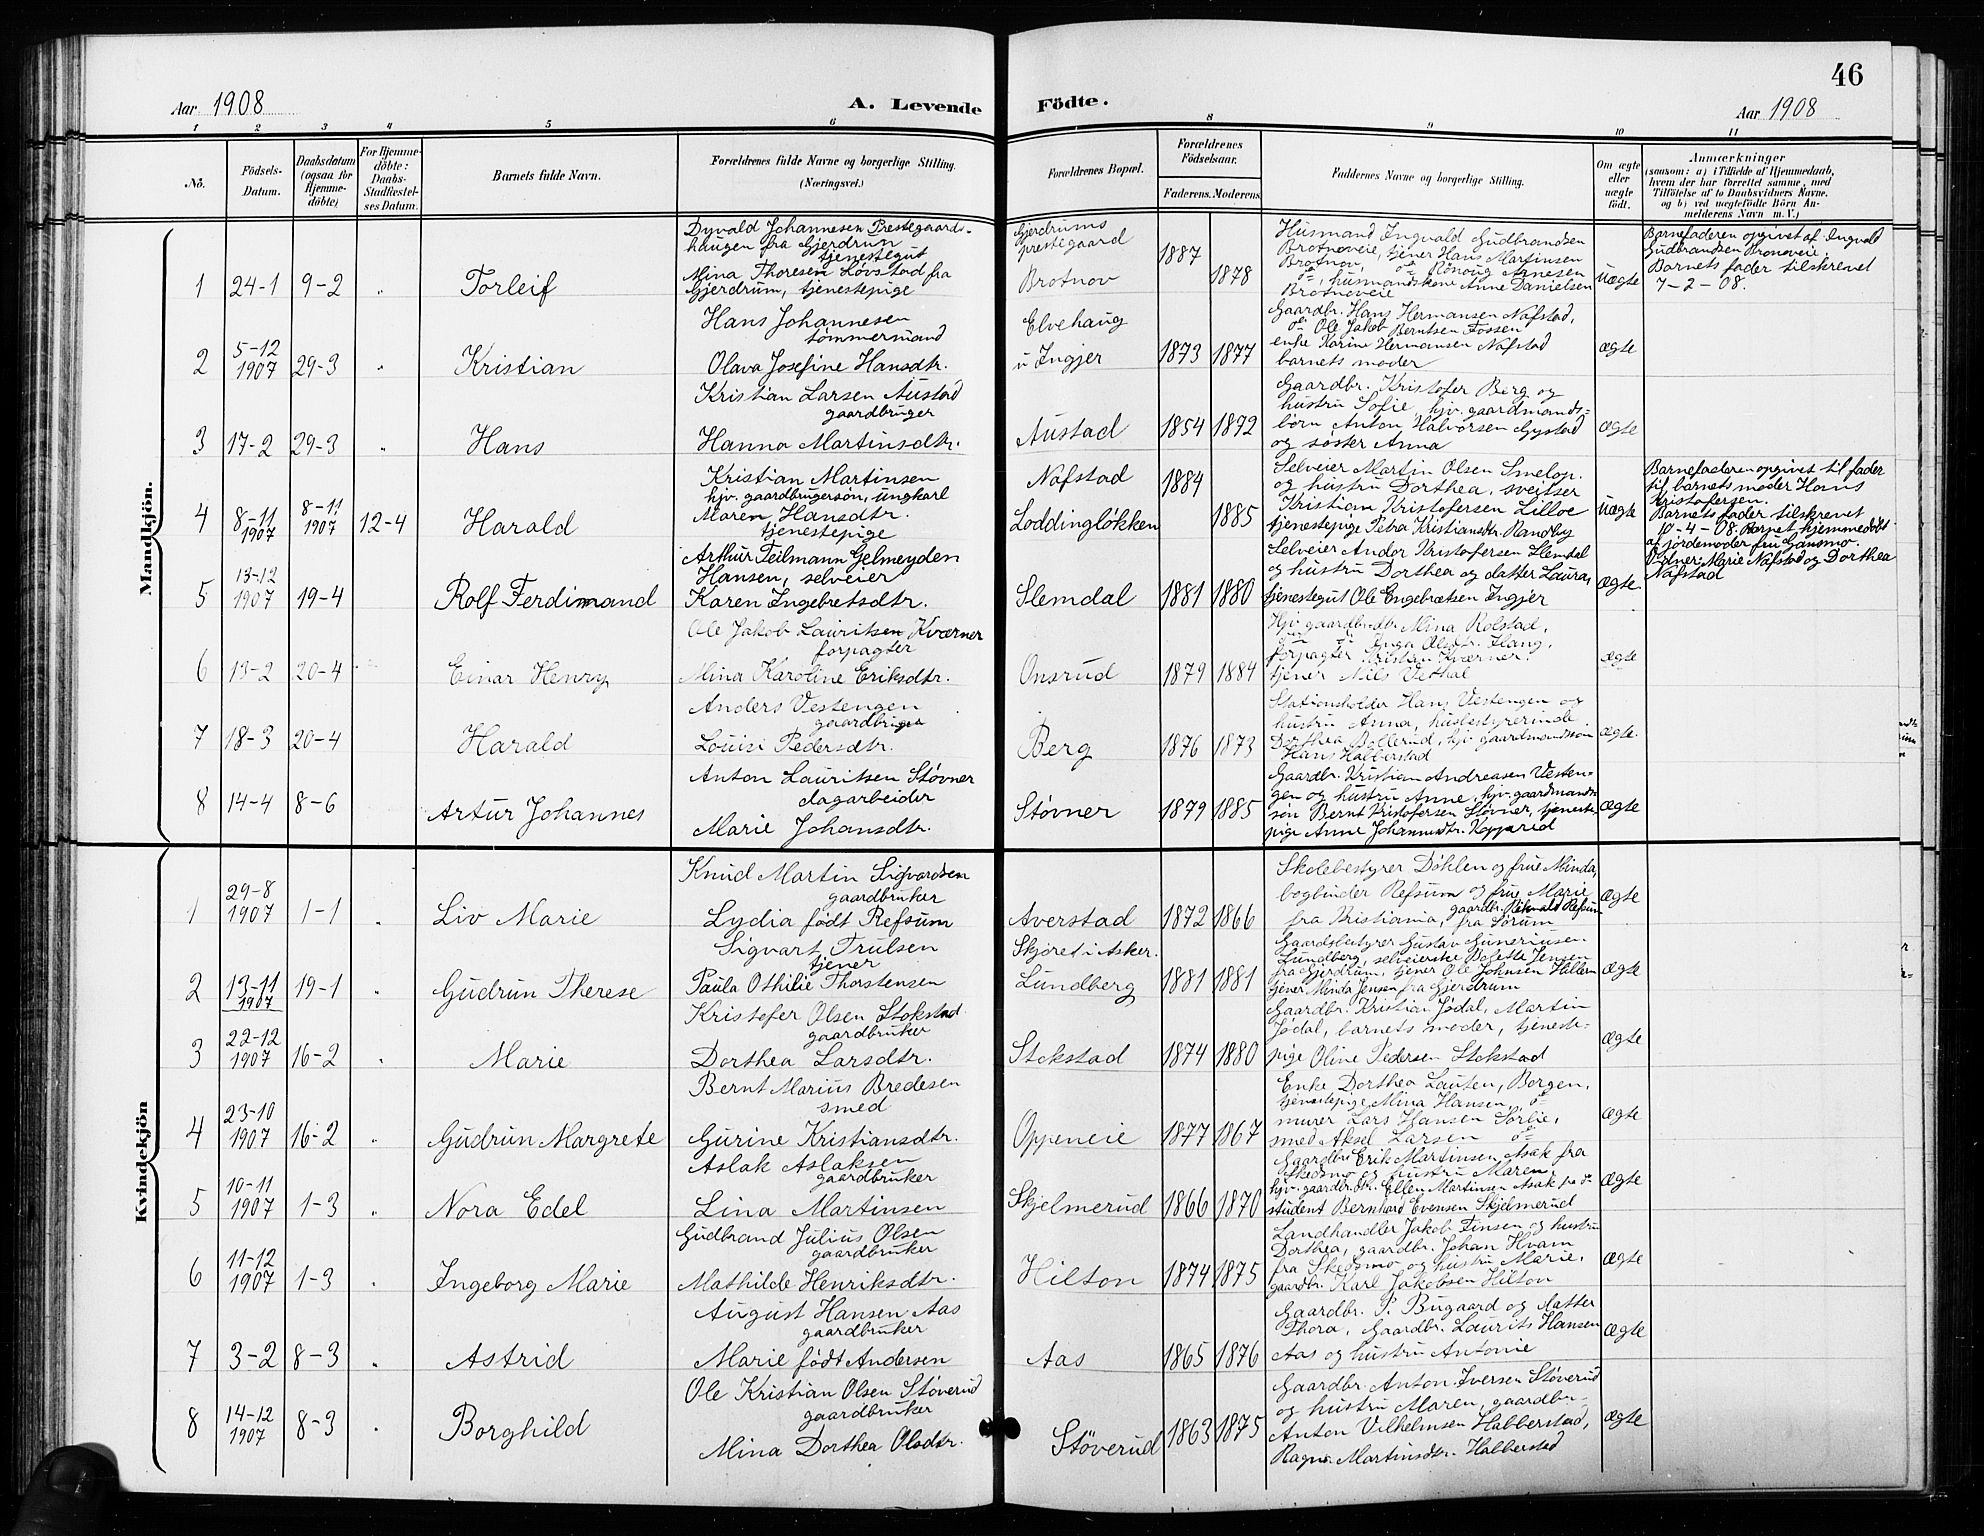 46
Aar 1908
A. Levende
Födte.
Aar 1908
1 2 3 4 5 6 8 9 10 11
No.
Födsels-Datum.
Daabsdatum (ogsaa for Hjemmedöbte)
For Hjemmedöbte: Daabs-Stadfæstelses Datum.
Barnets fulde Navn.
Forældrenes fulde Navne og borgerlige Stilling.
(Næringsvei.)
Forældrenes Bopæl.
Forældrenes Födselsaar.
Faderens. Moderens.
Faddernes Navne og borgerlige Stilling.
Om ægte eller uægte födt.
Anmærkninger
(saasom: a) i Tilfælde af Hjemmedaab,
hvem der har forrettet samme, med
Tilföielse af to Daabsvidners Navne.
og b) ved uægtefödte Börn Anmelderens Navn m. V.)
Mandkjön.
1 24-1 9-2 " Torleif
Dyvald Johannesen Prestegaard-
haugen fra Gjerdrum
tjenestegut
Mina Thoresen Løvstad fra
Gjerdrum, tjenestepige
Gjerdrums
prestegaard
Brotnov
1887 1878
Husmand Ingvald Gudbrandsen
Brotnoveie, tjener Hans Martinsen
Brotnov,
husmandskone Anne Danielsen
Brotnoveie
uægte
Barnefaderen opgivet af Ingvald
Gudbrandsen Bronoveie,
Barnets fader tilskrevet
7-2-08.
2 5-12 1907 29-3 " Kristian
Hans Johannesen
tømmermand
Olava Josefine Hansdtr.
Elvehaug
u Ingjer
1873 1877
Gaardbr. Hans Hermansen Nafstad,
do Ole Jakob Berntsen Fossen
enke Karine Hermansen Nafstad
barnets moder
ægte
3 17-2 29-3 " Hans
Kristian Larsen Austad
gaardbruger
Hanna Martinsdtr.
Austad
1854 1872
Gaardbr. Kristofer Berg og
hustru Sofie, hjv. gaardmands-
børn Anton Halvorsen Gystad
og søster Anna
ægte
4 8-11 1907 8-11 1907 12-4 Harald
Kristian Martinsen
hjv. gaardbrugersøn, ungkarl
Maren Hansdtr.
tjenestepige
Nafstad
Loddingløkken
1884 1885
Selveier Martin Olsen Smelop.
og hustru Dorthea, sveitser
Kristian Kristofersen Lilloe
tjenestepige Petra Kristiansdtr. Randby
uægte
Barnefaderen opgivet til fader
til barnets moder Hans
Kristofersen.
Barnets fader tilskrevet
10-4-08. Barnet hjemmedøbt
af jordemoder fru Gansmo.
Vidner: Marie Nafstad og Dorthea
Nafstad
5 13-12 1907 19-4 Rolf Ferdinand
Arthur Teilmann Gelmeyden
Hansen, selveier
Karen Ingebretsdtr.
Slemdal
1881 1880
Selveier Andor Kristofersen Slemdal
og hustru Dorthea og datter Laura,
tjenestegut Ole Engebretsen Ingjer
ægte.
6 13-2 20-4 Einar Henry
Ole Jakob Lauritsen Kværner
forpagter
Mina Karoline Eriksdtr.
Onsrud
1879 1884
Hjv. gaardbr.dtr. Mina Rolstad,
Inga Olsdtr. Haug,
forpagter Kristian Kværner.
tjener Nils Vethal
ægte
7 18-3 20-4 Harald
Anders Vestengen
gaardbruger
Louise Pedersdtr.
Berg
1876 1873
Stationsholder Hans Vestengen og
hustru Anna, husbestyrerinde
Dorthea Bollerud, hjv. gaardmandssøn
Hans Habberstad
ægte.
8 14-4 8-6 Artur Johannes
Anton Lauritsen Støvner
dagarbeider
Marie Johansdtr.
Støvner
1879 1885
Gaardbr. Kristian Andreasen Vesten-
gen og hustru Anne, hjv. gaardmands-
søn Bernt Kristofersen Støvner, tjeneste-
pige Anne Johannesdtr. Kopperud
ægte
Kvindekjön
1 29-8 1907 1-1 " Liv Marie
Knud Martin Sigvardsen
gaardbruker
Lydia født Refsum
Averstad
1872 1866
Skolebestyrer Døhlen og frue Minda,
bogbinder Refsum og frue Marie
fra Kristiania, gaardbr. Refsum
fra Sørum
ægte
2 13-11 1907 19-1 " Gudrun Therese
Sigvart Trulsen
tjener
Paula Othilie Thorstensen
Skjøret i Asker.
Lundberg
1881 1881
Gaardsbestyrer Gustav Guneriusen
Lundberg, selveierske Boletta Jensen
fra Gjerdrum, tjener Ole Johnsen Hellem
tjener Minda Jensen fra Gjerdrum
ægte
3 22-12 1907 16-2 " Marie
Kristofer Olsen Stokstad
gaardbruker
Dorthea Larsdtr.
Stokstad
1874 1880
Gaardbr. Kristian Jødal, Martin
Jødal, barnets moder, tjeneste-
pige Oline Pedersen Stokstad
ægte
4 23-10 1907 16-2 " Gudrun Margrete
Bernt Marius Bredesen
smed
Gurine Kristiansdtr.
Oppeneie
1877 1867
Enke Dorthea Lauten, Borgen,
tjenestepige Mina Hansen do
murer Lars Hansen Sørlie,
smed Aksel Larsen do
ægte
5 10-11 1907 1-3 " Nora Edel
Aslak Aslaksen
gaardbruker
Lina Martinsen
Skjelmerud
1866 1870
Gaardbr. Erik Martinsen Asak fra
Skedsmo og hustru Maren,
hjv. gaardbr.dtr. Ellen Martinsen Asak fra do
student Bernhard Evensen Skjelmerud
ægte
6 11-12 1907 1-3 " Ingeborg Marie
Gudbrand Julius Olsen
gaardbruker
Mathilde Henriksdtr.
Hilton
1874 1875
Landhandler Jakob Finsen og hustru
Dorthea, gaardbr. Johan Hvam
fra Skedsmo og hustru Marie,
gaardbr. Karl Jakobsen Hilton
ægte
7 3-2 8-3 " Astrid
August Hansen Aas
gaardbruker
Marie født Andersen
Aas
1865 1876
Gaardbr. P. Bugaard og datter
Thora, Gaardbr. Laurits Hansen
Aas og hustru Antonie
ægte
8 14-12 1907 8-3 " Borghild
Ole Kristian Olsen Støverud
gaardbruker
Mina Dorthea Olsdtr.
Støverud
1863 1875
Gaardbr. Anton Iversen Støverud
og hustru Maren, gaardbr.
Anton Vilhelmsen Habberstad,
Ragna Martinsdtr. Habberstad
ægte